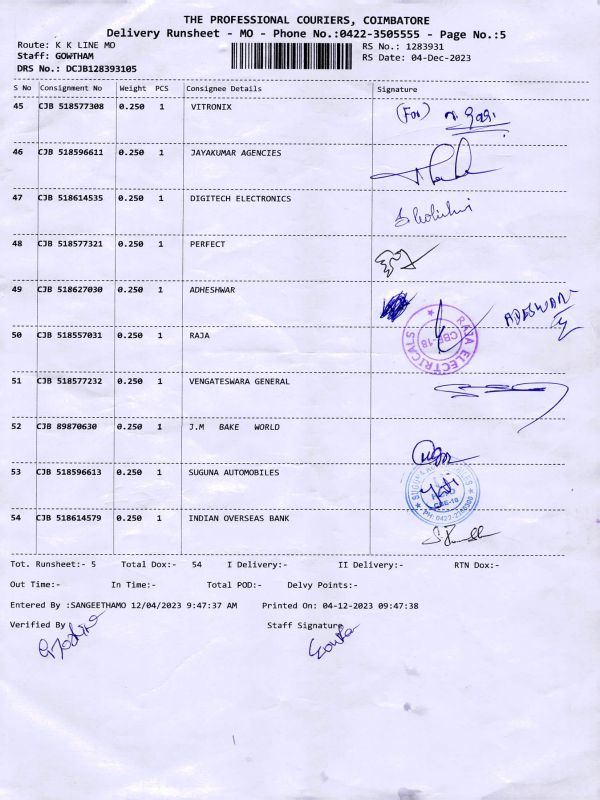 THE PROFESSIONAL COURIERS, COIMBATORE
Delivery Runsheet - MO - Phone No.:0422-3505555 - Page No.:5
Route: K K LINE MO RS No.: 1283931
Staff: GOWTHAM RS Date: 04-Dec-2023
DRS No.: DCJB128393105
S No Consignment No Weight PCS Consignee Details Signature
45 CJB 518577308 0.250 1 VITRONIX (For)
46 CJB 518596611 0.250 1 JAYAKUMAR AGENCIES
47 CJB 518614535 0.250 1 DIGITECH ELECTRONICS
48 CJB 518577321 0.250 1 PERFECT
49 CJB 518627030 0.250 1 ADHESHWAR ADESWAR
50 CJB 518557031 0.250 1 RAJA RAJA ELECTRICALS CBE-18
51 CJB 518577232 0.250 1 VENGATESWARA GENERAL
52 CJB 89870630 0.250 1 J.M BAKE WORLD
53 CJB 518596613 0.250 1 SUGUNA AUTOMOBILES
54 CJB 518614579 0.250 1 INDIAN OVERSEAS BANK
Tot. Runsheet:- 5 Total Dox:- 54 I Delivery:- II Delivery:- RTN Dox:-
Out Time:- In Time:- Total POD:- Delvy Points:-
Entered By :SANGEETHAMO 12/04/2023 9:47:37 AM Printed On: 04-12-2023 09:47:38
Verified By Staff Signature